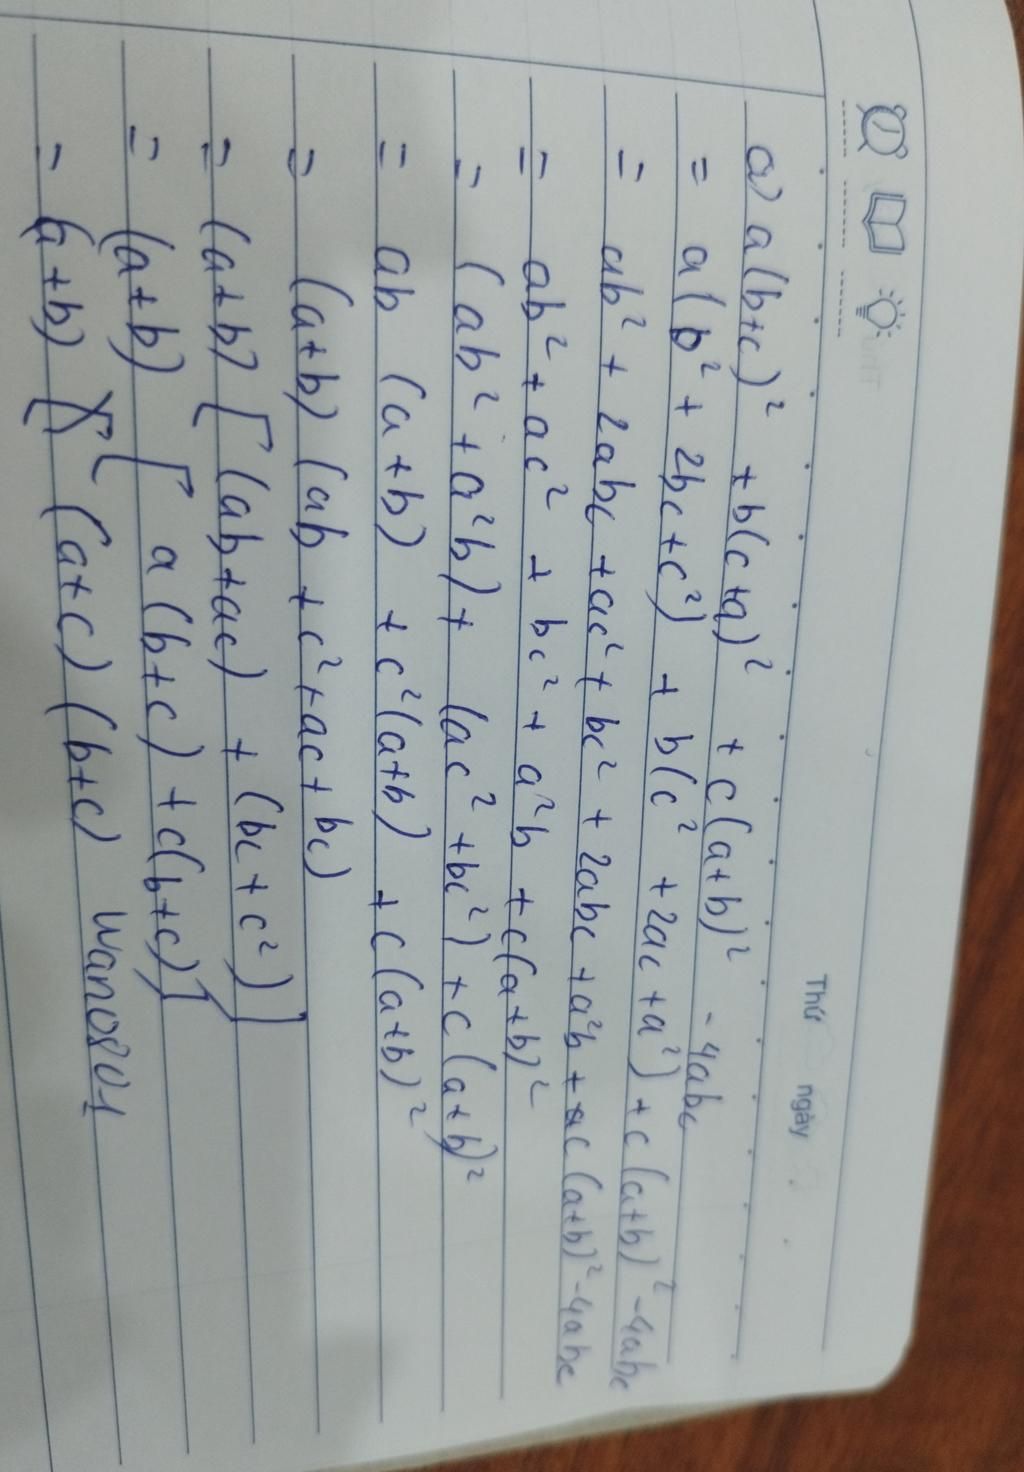 Thứ ngày
a) a(b+c)² + b(c+a)² + c(a+b)² - 4abc
= a(b² + 2bc + c²) + b(c² + 2ac + a²) + c(a+b)² - 4abc
= ab² + 2abc + ac² + bc² + 2abc + a²b + c(a+b)² - 4abc
= ab² + ac² + bc² + a²b + c(a+b)²
= (ab² + a²b) + (ac² + bc²) + c(a+b)²
= ab (a+b) + c²(a+b) + c(a+b)²
= (a+b) (ab + c² + ac + bc)
= (a+b) [(ab+ac) + (bc + c²)]
= (a+b) [a(b+c) + c(b+c)]
= (a+b) (a+c) (b+c) wano801